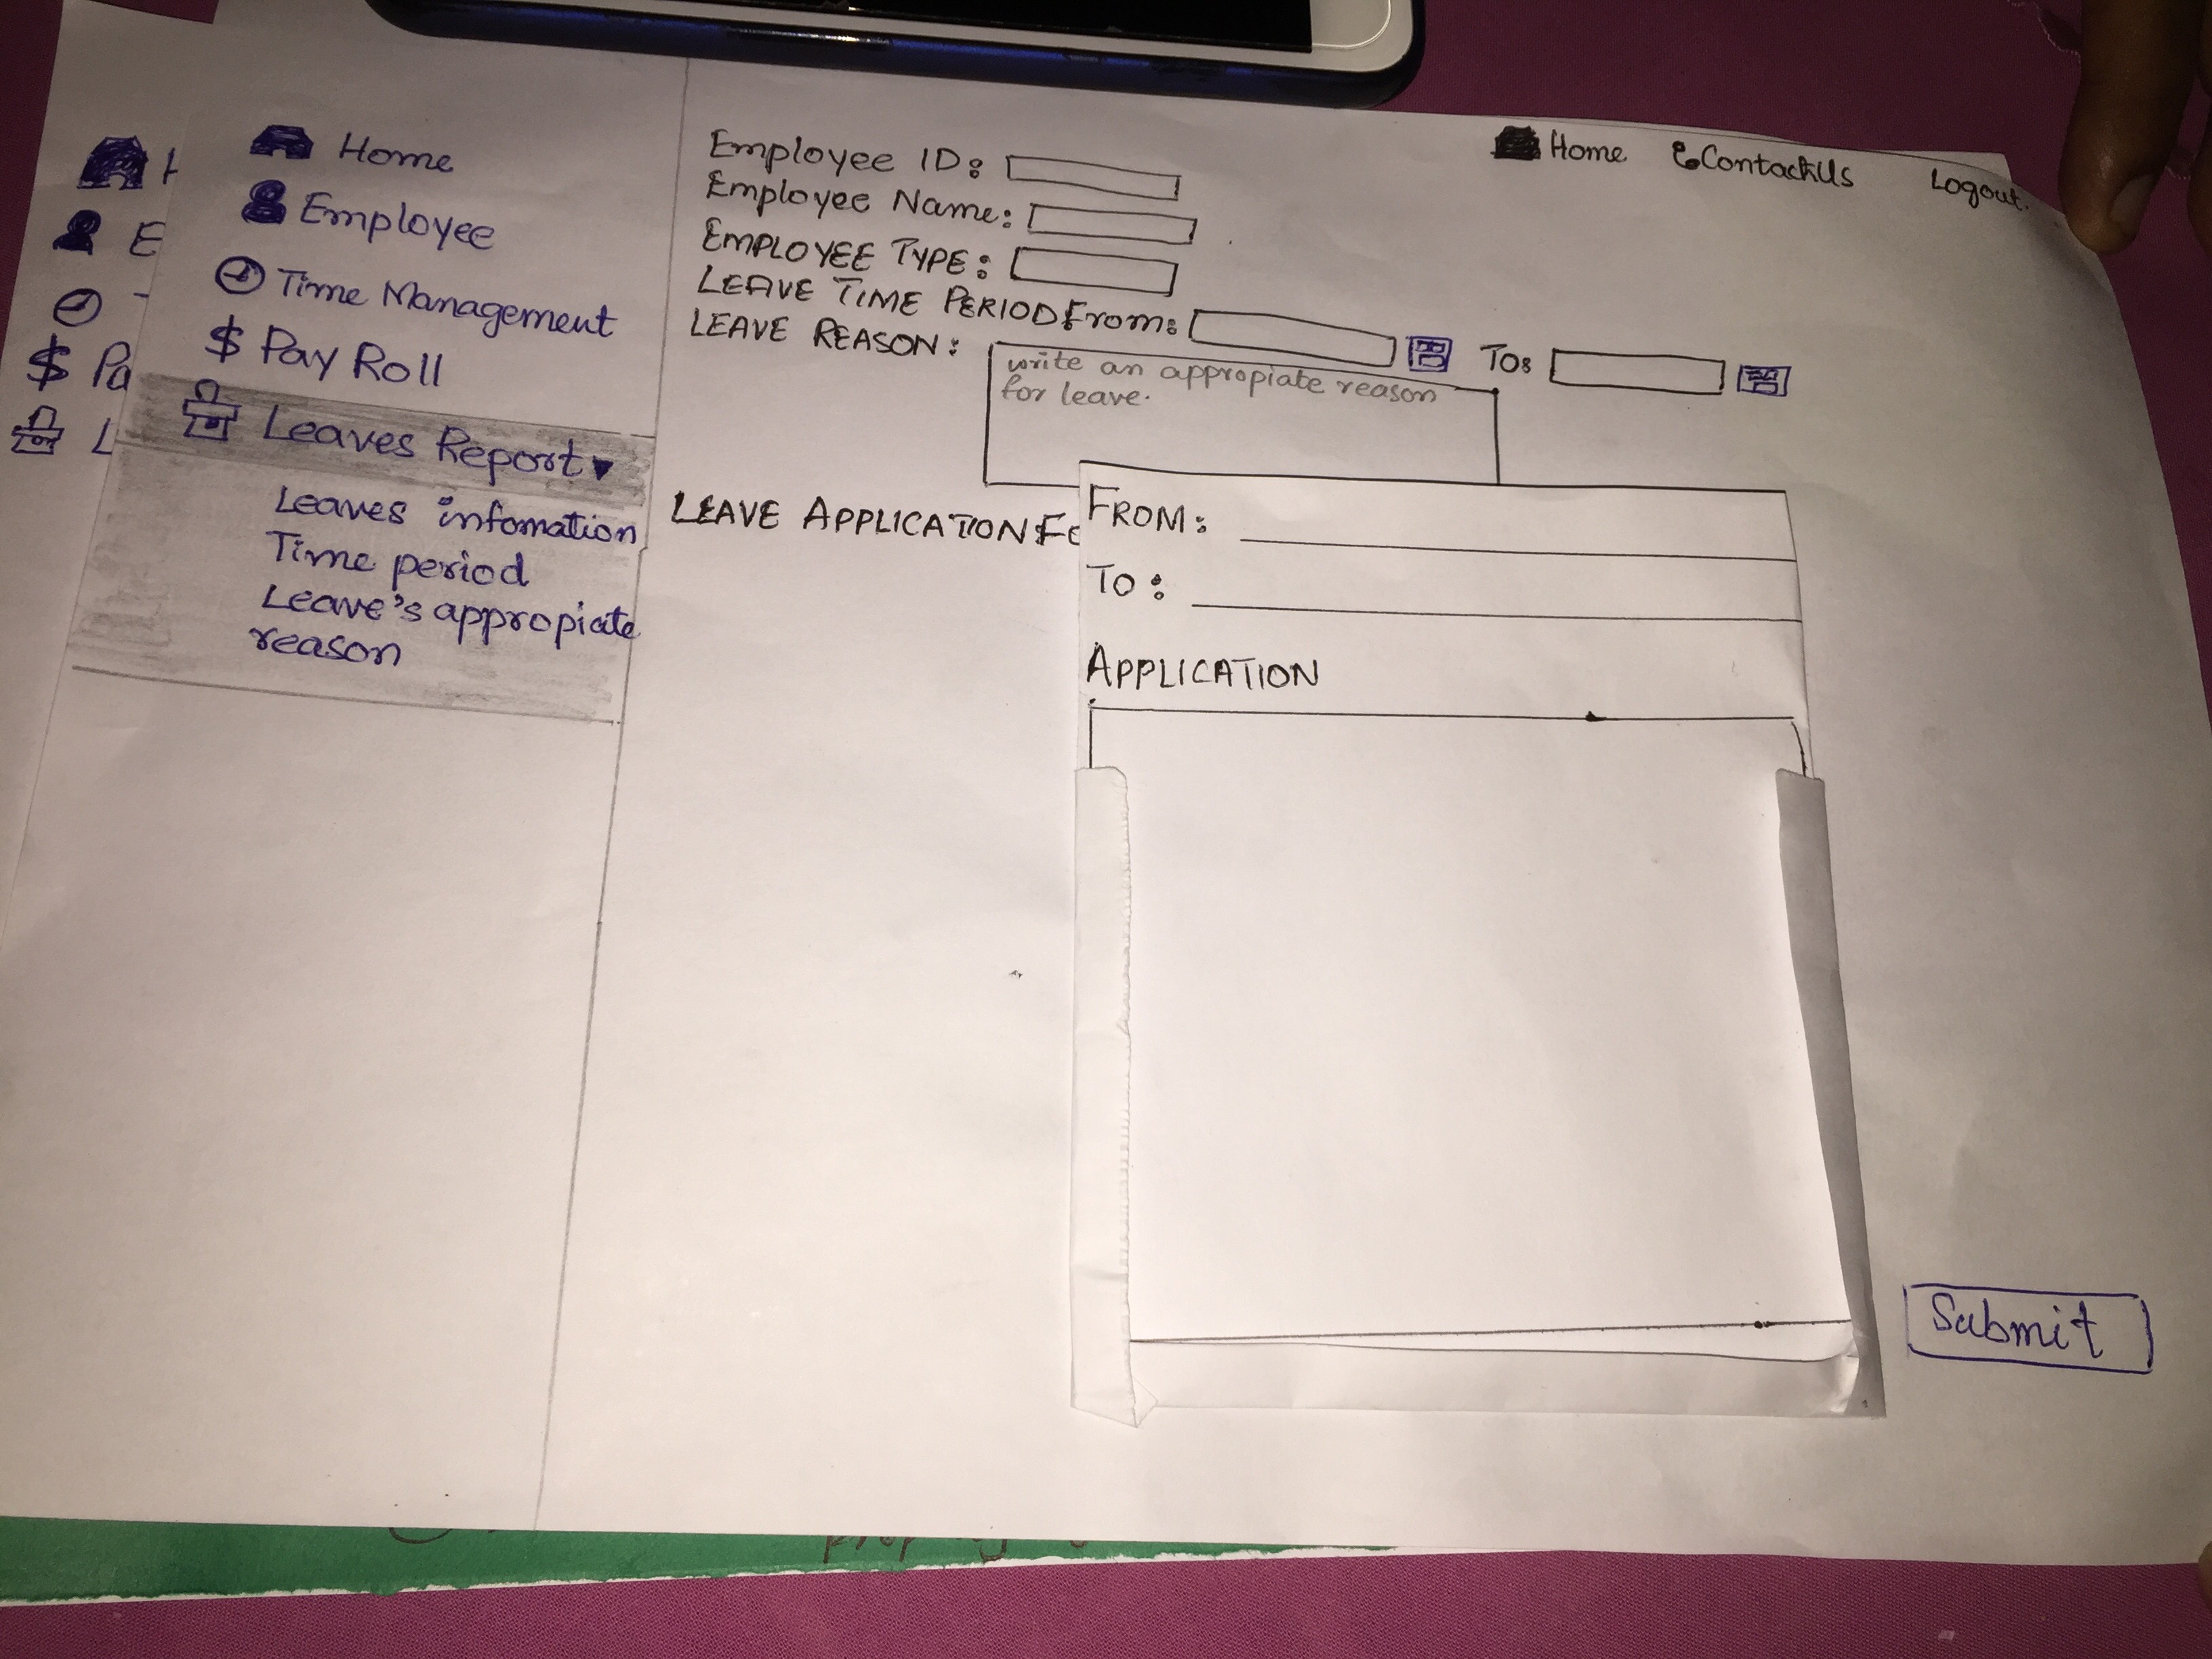 Home Contact Us Logout.
Home
Employee
Time Management
$ Pay Roll
Leaves Report
Leaves infomation
Time period
Leave's appropiate
reason
E
$ Pa
L
Employee ID:
Employee Name:
EMPLOYEE TYPE:
LEAVE TIME PERIOD From: To:
LEAVE REASON:
write an appropiate reason
for leave.
LEAVE APPLICATION Fo
FROM:
To:
APPLICATION
Submit